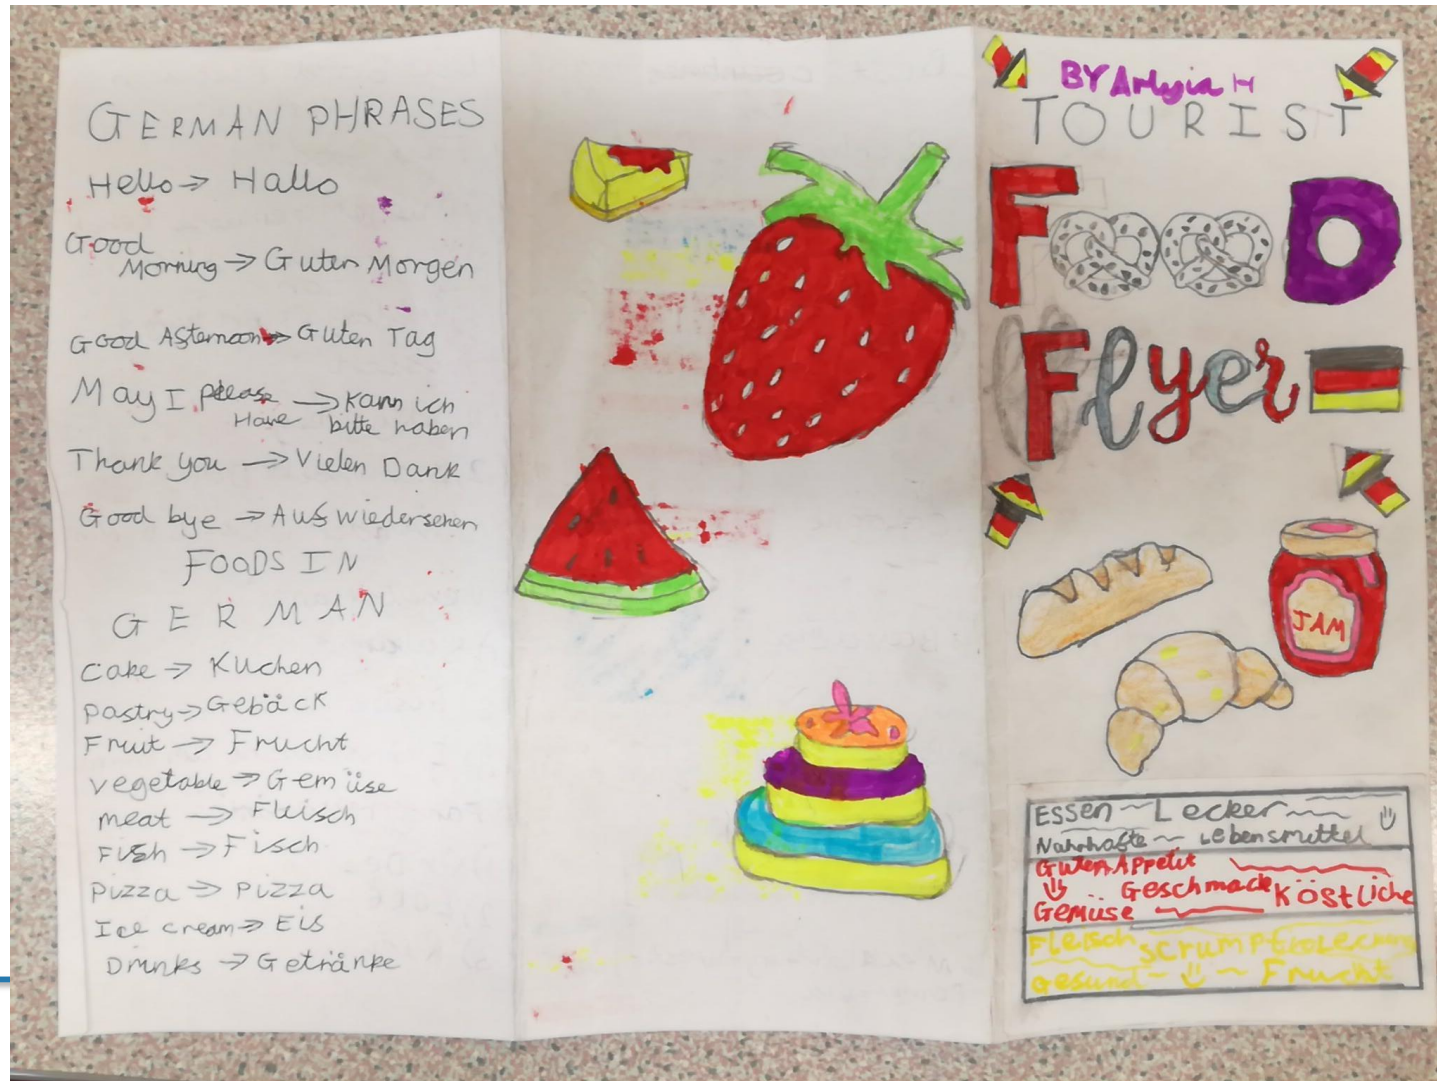 GERMAN PHRASES
Hello → Hallo
Good
Morning → Guten Morgen
Good Afternoon → Guten Tag
May I please → Kann ich
Have bitte haben
Thank you → Vielen Dank
Good bye → Auf wiedersehen
FOODS IN
GERMAN
Cake → Kuchen
Pastry → Gebäck
Fruit → Frucht
vegetable → Gemüse
meat → Fleisch
Fish → Fisch
Pizza → Pizza
Ice cream → Eis
Drinks → Getränke
JAM
H
BY
TOURIST
FOOD
Flyer
Essen ~ Lecker
Nahrhafte ~ Lebensmittel
Guten Appetit
Geschmack Köstliche
Gemüse
Fleisch
gesund ~ ~ Frucht